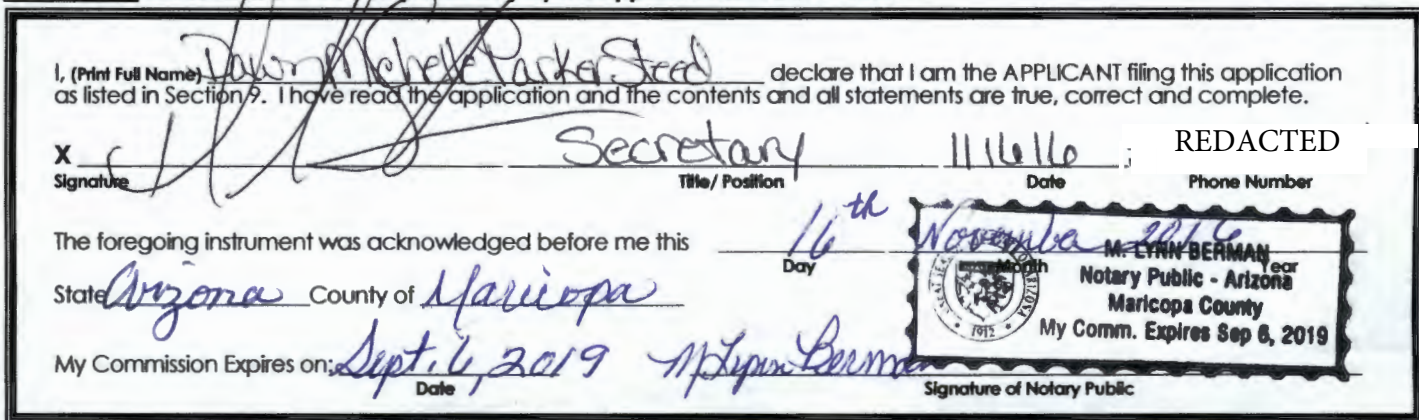 I, (Print Full Name) Dawn Michelle Parker Steed declare that I am the APPLICANT filing this application
as listed in Section 9. I have read the application and the contents and all statements are true, correct and complete.
X Secretary 111616 REDACTED
Signature Title/ Position Date Phone Number
The foregoing instrument was acknowledged before me this 16th November 2016
Day Month Year
State Arizona County of Maricopa
My Commission Expires on: Sept. 6, 2019 M Lynn Berman
Date Signature of Notary Public
M. LYNN BERMAN
Notary Public - Arizona
Maricopa County
My Comm. Expires Sep 6, 2019
1912